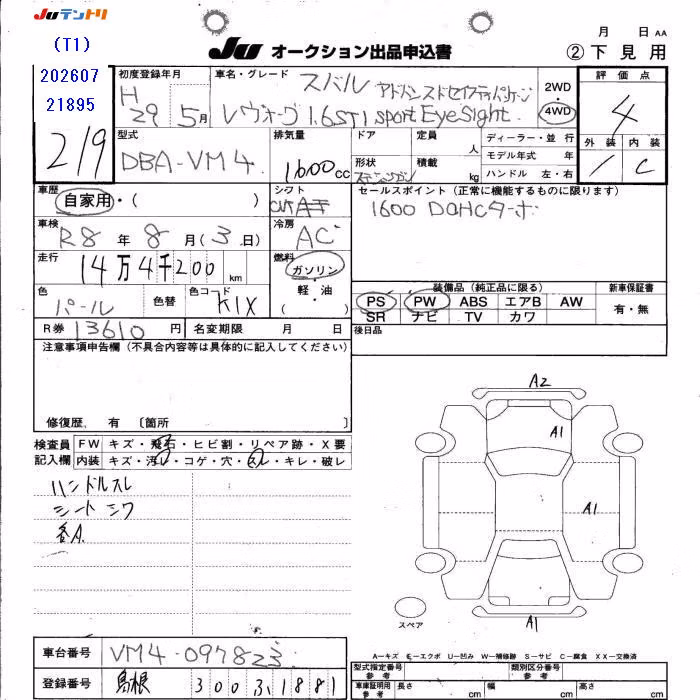 JUテントリ
(T1)
202607
21895
JU オークション出品申込書
月 日 AA
② 下見用
初度登録年月
H29 5月
車名・グレード
スバル アドバンスドセイフティパッケージ
レヴォーグ 1.6STI sport EyeSight.
2WD
4WD
評価点
4
外装 内装
1 C
219
型式
DBA-VM4.
排気量
1600 cc
ドア
定員 人
形状
ステーションワゴン
積載 kg
ディーラー・並行
モデル年式 年
ハンドル 左・右
車歴
自家用・( )
シフト
AT
セールスポイント(正常に機能するものに限ります)
1600 DOHCターボ
車検
R8 年 8 月(3 日)
冷房
AC
走行
14万4千200 km
燃料
ガソリン・軽・油
( )
色
パール
色替
色コード
K1X
装備品(純正品に限る)
PS PW ABS エアB AW
SR ナビ TV カワ
新車保証書
有・無
R券 13610 円
名変期限 月 日
後日品
注意事項申告欄(不具合内容等は具体的に記入してください)
修復歴. 有 〔箇所 〕
検査員記入欄
FW キズ・飛石・ヒビ割・リペア跡・X要
内装 キズ・汚レ・コゲ・穴・スレ・キレ・破レ
ハンドルスレ
シートシワ
各A.
A2
A1
A1
A1
スペア
A－キズ E－エクボ U－凹み W－補修跡 S－サビ C－腐食 XX－交換済
車台番号 VM4-097823
登録番号 島根 300 3 1881
型式指定番号 参考
類別区分番号 参考
車庫証明用 参考 長さ cm 幅 cm 高さ cm